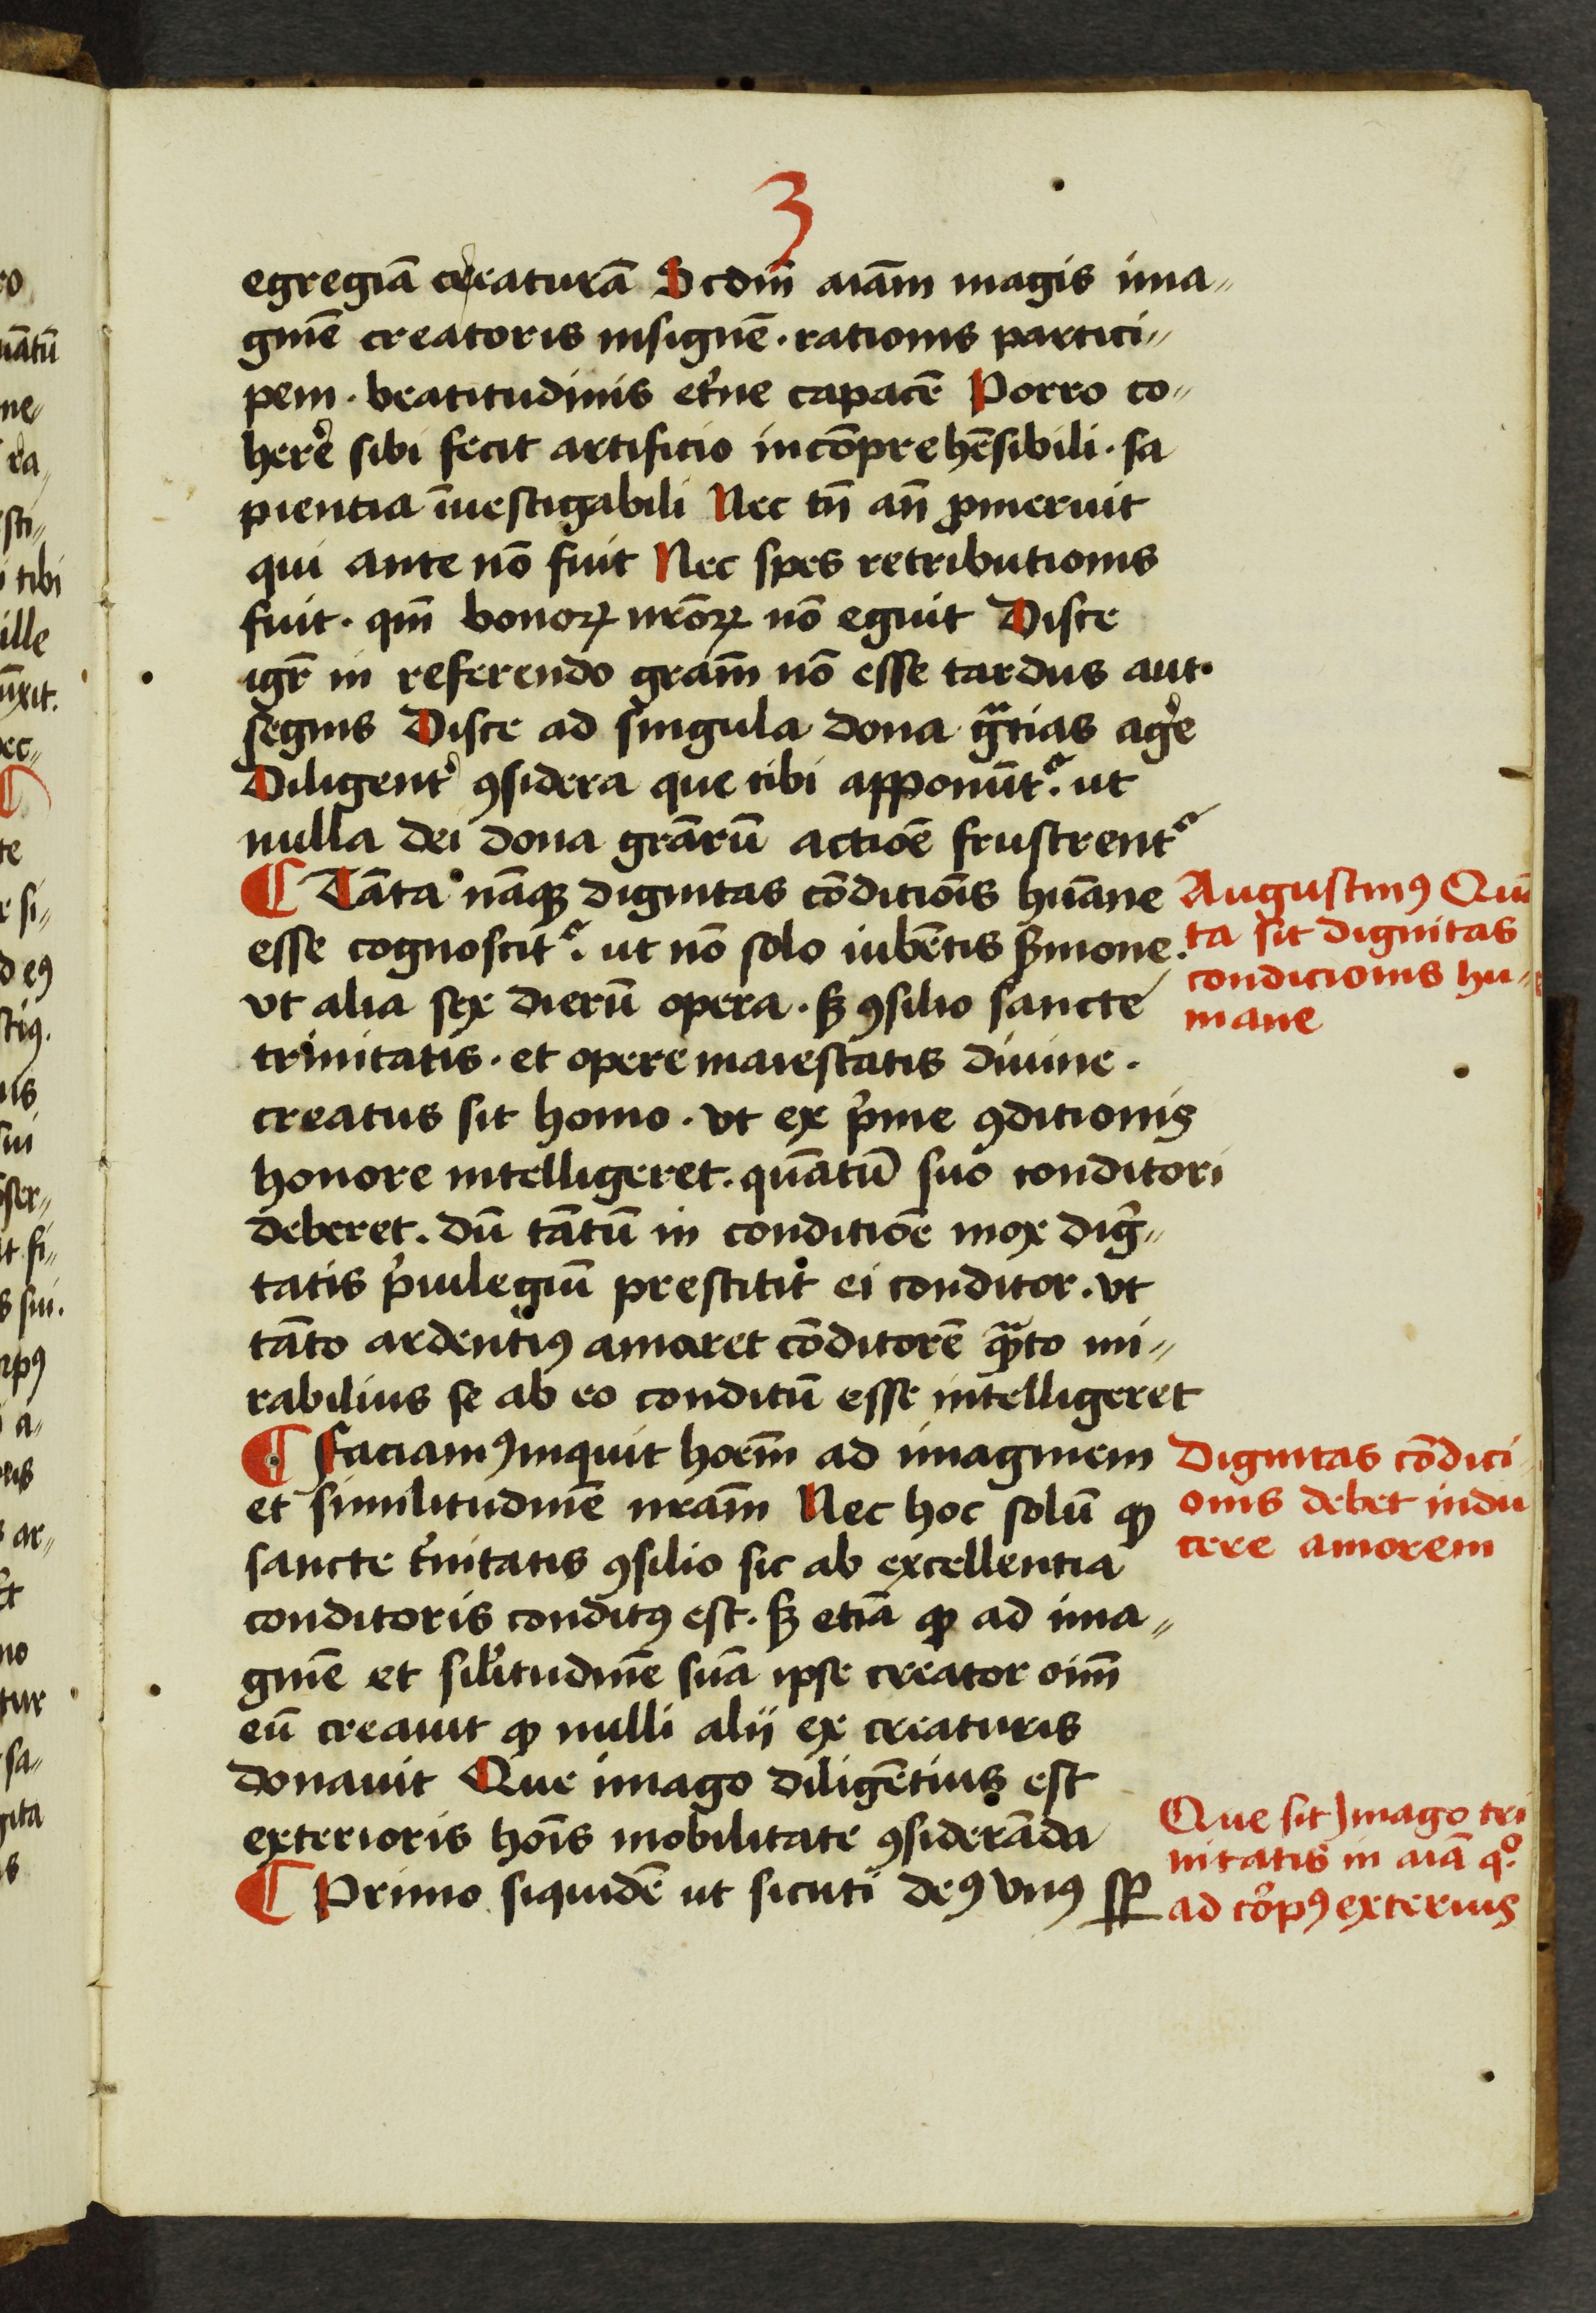 3
egregiā creaturā Scdm̄ aiām magis ima„
ginē creatoris insignē · rationis partici„
pem · beatitudinis et̾ne capacē Porro co„
here̾ sibi fecit artificio incōprehēsibili · sa
pientia īuestigabili Nec tn̄ an̄ ꝓmeruit
qui ante nō fuit Nec spes retributionis
fuit · qm̄ bonoꝝ nr̄oꝝ nō eguit Disce
igr̄ in referendo gram̄ nō esse tardus aut·
segnis Disce ad singula dona gͣtias ag̾e
Diligent̾ ꝯsidera que tibi apponūt᷑. ut
nulla dei dona grārū actiōe frustrent᷑
¶ Tāta nāqꝫ dignitas cōditiōis huāne
esse cognoscit᷑. ut nō solo iubētis ẜmone.
vt alia sex dierū opera · sꝫ ꝯsilio sancte
trinitatis · et opere maiestatis diuine ·
creatus sit homo · vt ex p̾me ꝯditionis
honore intelligeret. quātū suo conditori
deberet. dū tātū in conditiōe mox dig̾„
tatis p̾uilegiū prestitit ei conditor. vt
tāto ardentiꝯ amaret cōditorē qͣto mi„
rabilius se ab eo conditū esse intelligeret
¶ Faciamꝯ inquit hoēm ad imaginem
et similitudinē nrām Nec hoc solū ꝙ
sancte t̾nitatis ꝯsilio sic ab excellentia
conditoris conditꝯ est · sꝫ etiā ꝙ ad ima„
ginē et sil̾itudinē suā ipse creator oīm
eū creauit ꝙ nulli alij ex creaturis
donauit Que imago diligētius est
exterioris hoīs mobilitate ꝯsiderāda
¶ Primo siquidē ut sicuti deꝯ vnꝯ sꝑ
Augustinꝯ Quā
ta sit dignitas
condicionis hu„
mane
Dignitas cōdici
onis debet indu
cere amorem
Que sit Jmago tri
nitatis in aiā qͦ.
ad corpꝯ exterius